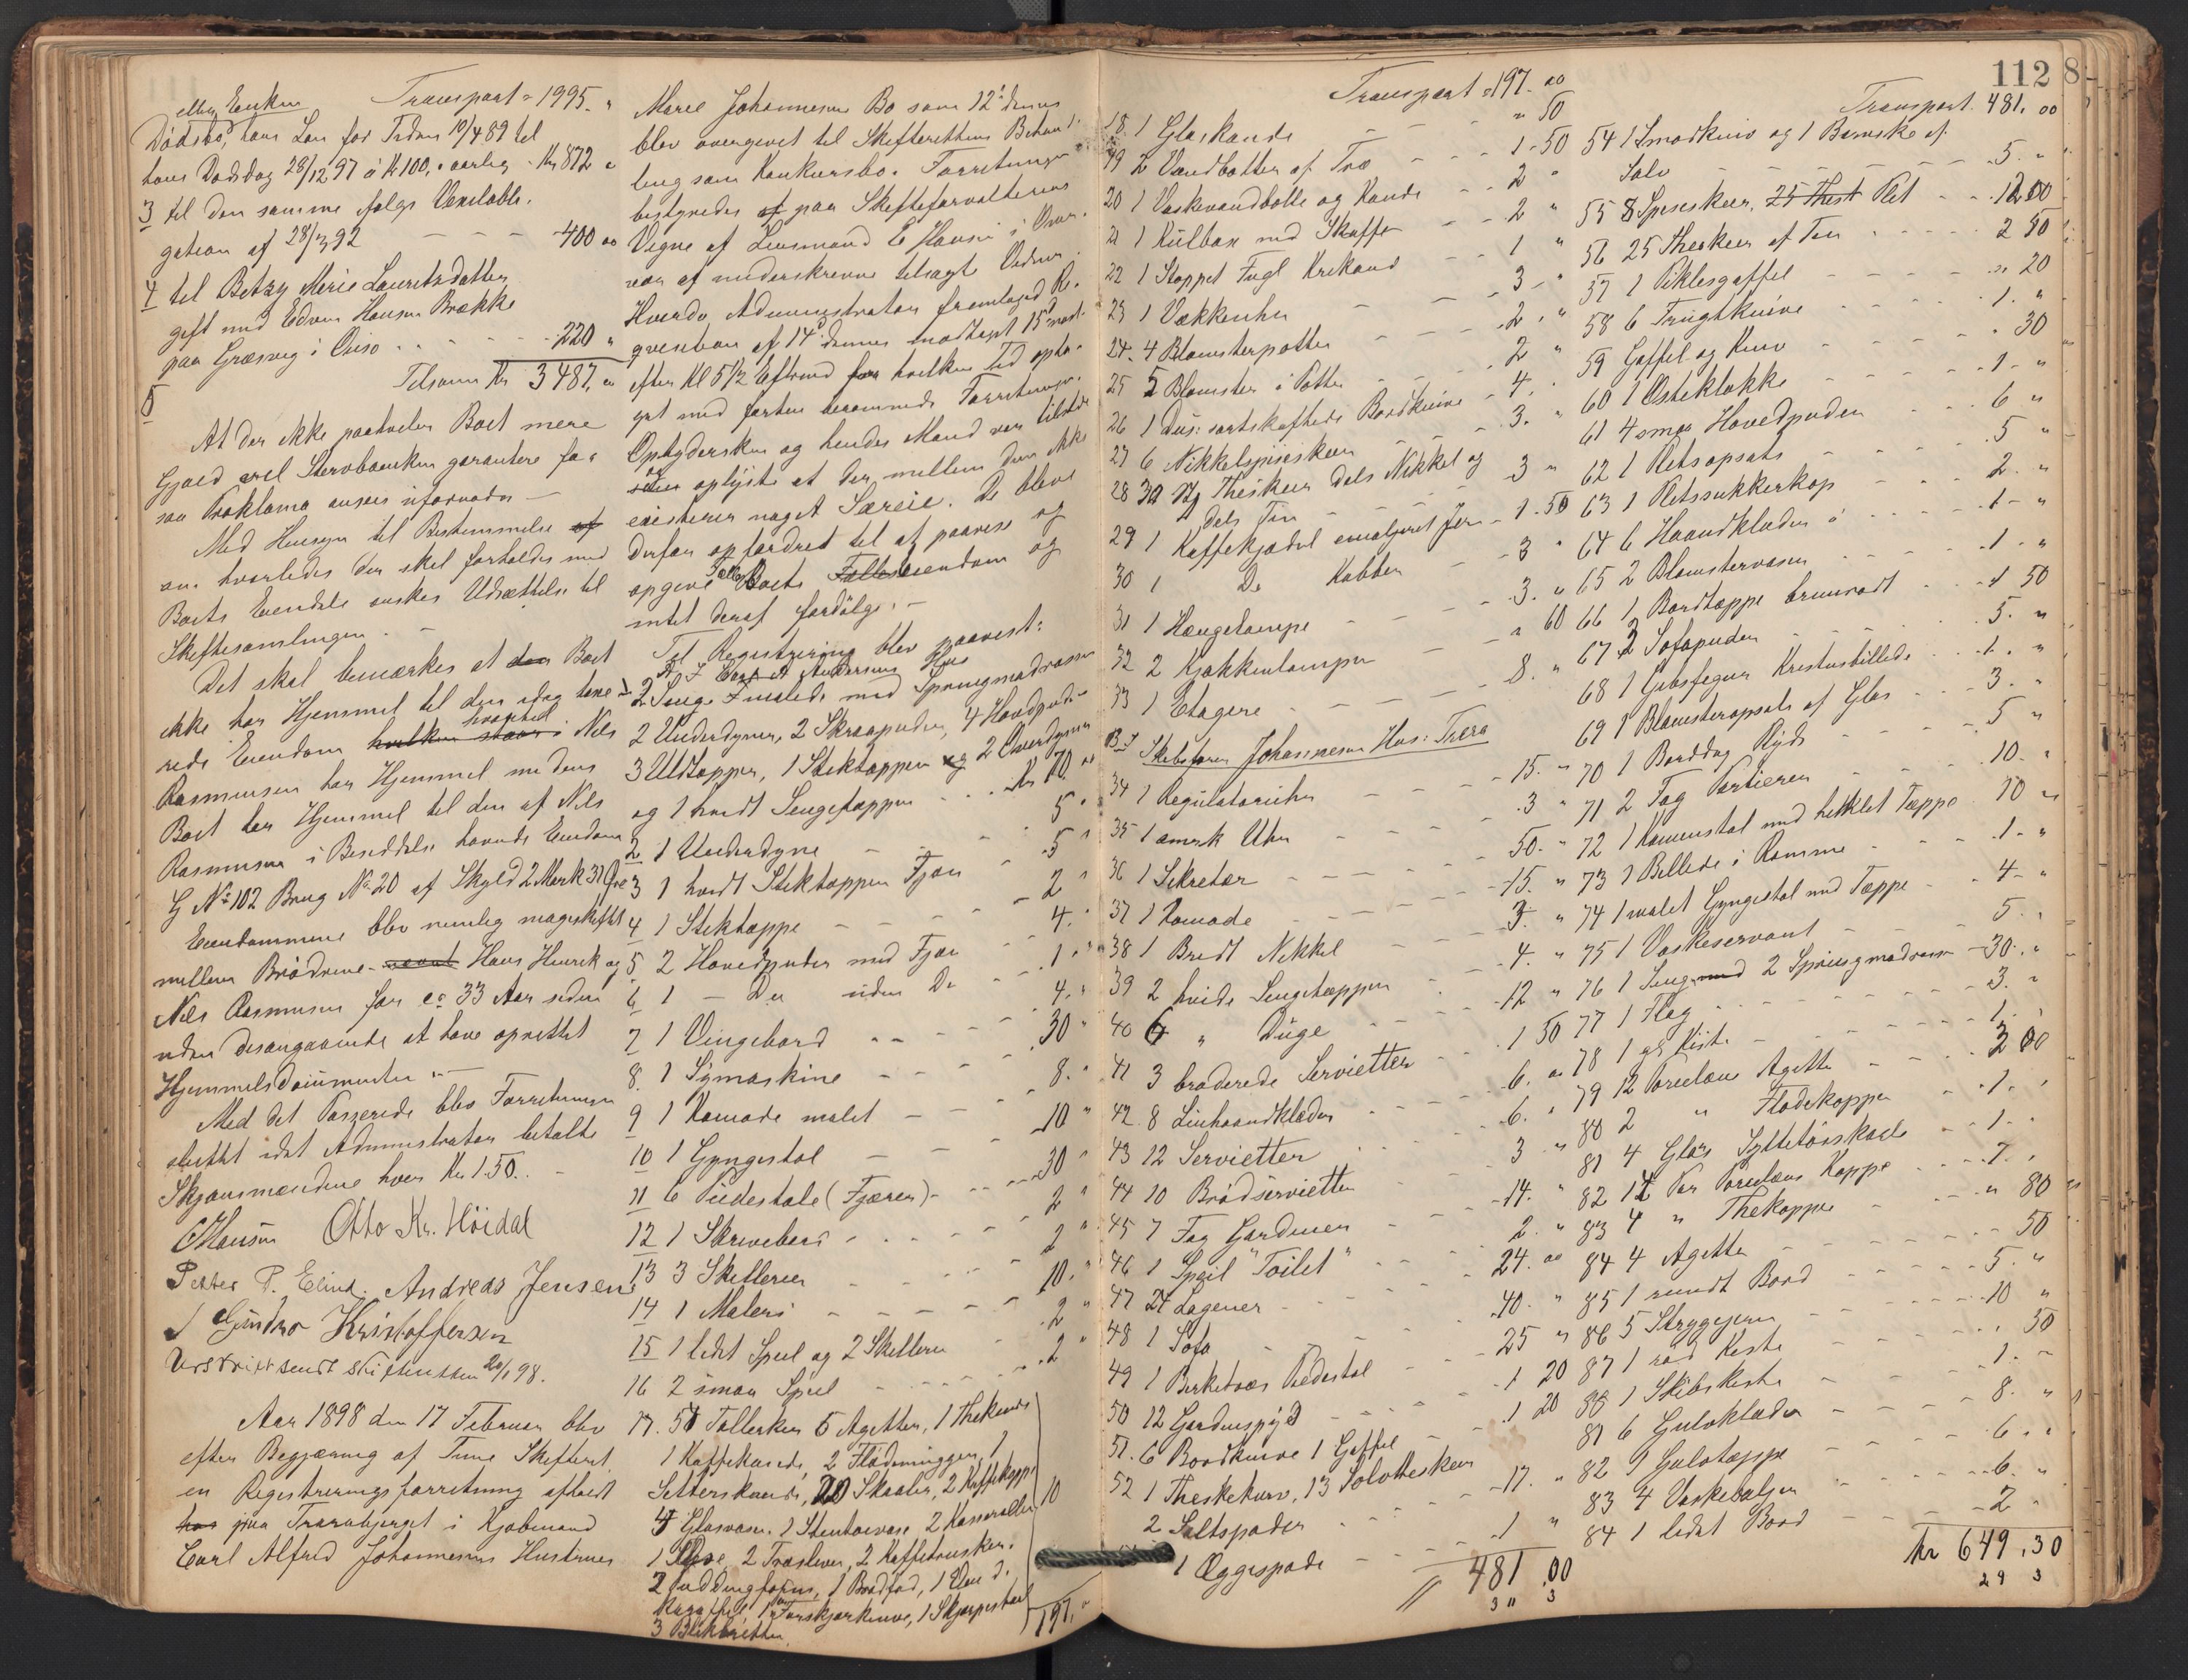 112
8
Enken Transport = 1995. "
Dødsbo, hans Løn for Tiden 10/4 89 til
hans Dødsdag 28/12 97 à Kr 100, aarlig - Kr 872 "
3 til den samme ifølge Vexelobli-
gation af 28/ 92 - - - 400 00
4 til Betzy Marie Lauritzdatter
gift med Edvin Hansen Brække
paa Græsvig i Onsø . . - - 220 "
Tilsam Kr 3487. "
5
At der ikke paahviler Boet mere
Gjæld vil Stervboenken garantere for
saa Proklama ansees ufornøden —
Med Hensyn til Bestemmelse af
om hvorledes der skal forholdes med
Boets Eiendele ønskes Udsættelse til
Skiftesamlingen. —
Det skal bemærkes at den Boet
ikke har Hjemmel til den idag taxe-
rede Eiendom hvortil Nils
Rasmussen har Hjemmel medens
Boet har Hjemmel til den af Nils
Rasmussen i Besiddelse havende Eiendom
G No 102 Brug No 20 af Skyld 2 Mark 31 Øre
Eiendommene blev nemlig mageskiftet
mellem Brødrene Hans Henrik og
Nils Rasmussen for ca 33 Aar siden
uden desangaaende at have oprettet
Hjemmelsdocumenter. —
Med det Passerede blev Forretningen
sluttet idet Administrator betalte
Skjønsmændene hver Kr 1.50. -
E Hansen Otto Kr. Höidal
Petter P. Elind. Andreas Jensen
Gundro Kristoffersen
Udskrift sendt Skifteretten 20/1 98.
Aar 1898 den 17 Februar blev
efter Begjæring af Tune Skifteret
en Registreringsforretning afholdt
hos paa Trarabjerget i Kjøbmand
Carl Alfred Johannesens Hustrues
Marie Johannesens Bo som 12' dennes
blev overgivet til Skifterettens Behand-
ling som Konkursbo. Forretningen
bestyredes af paa Skifteforvalterens
Vegne af Lensmand E Hansen i Overvær
af underskrevne tilsagte Vidner.
Hvorda Administrator fremlagde Re-
qvisition af 14d dennes modtaget 15' næst-
efter Kl 5 1/2 Eftmd for hvilken Tid opta-
get med førten berammede Forretningen.
Opbydersken og hendes Mand var tilstede
og oplyste at der mellem dem ikke
existerer noget Særeie. De bleve
derfor opfordret til at paavise og
opgive Fælles Boets Eiendom og
intet deraf fordølge. —
Til Registrering blev paavist:
A I Carl A Andersens Hus
1 2 Senge Umalede med Springmadrasser
2 Underdyner, 2 Skraapuder, 4 Hovedpuder
3 Uldtepper, 1 Stiktæppen og 2 Overdyner
og 1 hvidt Sengetæppe . . . Kr 70. 00
2 1 Underdyne - - 5 "
3 1 hvidt Stiktæppe Fjær - 5 "
4 1 Stiktæppe - - 2 "
5 2 Hovedpuder med Fjær - 4. "
6 1 - Do uden Do - 1 "
7 1 Vingebord " - 4. "
8. 1 Symaskine - - - 30 "
9 1 Komode malet - - 8. "
10 1 Gyngestol - - 10 "
11 6 Pidestole (Fjærer) - - 30 "
12 1 Skrivebord - - 2 "
13 3 Skillerier - - 2 "
14 1 Maleri - - - 10. "
15 1 lidet Speil og 2 Skillerier - 2 "
16 2 smaa Speil - - - 2 "
17. 51 Tallerken 5 Agetter, 1 Thekande
1 Kaffekande, 2 Flødemugger, 1
Setterskande, 20 Skaaler, 2 Kaffekopper
4 Glasvaser, 1 Stentøivase 2 Kasseroller 10
1 2 Træsliver, 2 Kaffetrusker.
2 Puddingforme, 1 Brødfad, 1
Kaaffel, 1 Forskjærkniv, 1 Skjærpestaal
3 Blikbretter. 197. "
Transport = 197. 00
18. 1 Glaskande - - " 50
19 2 Vandbøtter af Træ - - 1 - 50
20 1 Vaskevandbolle og Kande - - 2 "
21 1 Kulbox med Skuffe - - 2 "
22 1 Stoppet Fugl Krikand - - 1 "
23 1 Vækkeuhr - - - 3 - "
24. 4 Blomsterpotter - - 2 . "
25 5 Blomster i Potter - - 2 "
26 1 Dus: sortskaftede Bordknive - 4. "
27 6 Nikkelspiseskeer - - - 3. "
28 Theskeer dels Nikkel og
dels Tin - - - 3 "
29 1 Kaffekjedel emaljeret Jern - 1 - 50
30 1 Do Kobber - 3 "
31 1 Hængelampe - - - 3. "
32 2 Kjøkkenlamper - - " 60
33 1 Etagere - - - - 8. "
B I Skibsfører Johannesens Hus: Træra
34 1 Regulatoruhr - - - 15. "
35 1 amrk Uhr - - - 3 "
36 1 Sekretær - - - - 50. "
37 1 Komode - - - - 15. "
38 1 Bredt Nikkel - - - 3. "
39 2 hvide Sengetæpper - - 4. "
40 6 " Duge - - - 12 "
41 3 broderede Servietter - - 1 50
42. 8 Linhaandklæder - - 6. "
43 12 Servietter - - - 6. "
44 10 Brødservietter - - - 3 "
45 7 Fag Gardiner - - - 14. "
46 1 Speil "Toilet" - - 2. "
47 24 Lagener - - - 24. 00
48 1 Sofa - - - 40. "
49 1 Birketræs Pidestol - - 25 "
50 12 Gardinspyd - - - 1 20
51. 6 Bordknive 1 Gaffel - - 1 20
52 1 Theskekurv, 13 Sølvtheskeer
2 Saltspader - - - 17. "
1 Æggespade - - 1 "
481 .00
Transport. 481. 00
54 1 Smørkniv og 1 Barneske af
Sølv - - - 5. "
55 8 Spiseskeer, 25 Thesk Plet - - 12 00
56 25 Theskeer af Tin - - - 2 50
57 1 Piklesgaffel - - - " 20
58 6 Frugtknive - - - 1. "
59 Gaffel og Kniv - - - " 30
60 1 Osteklokke - - - 1 - "
61 4 smaa Hovedpuder - - - 6 "
62 1 Pletsopsats - - - 5 "
63 1 Pletssukkerkop - - - 2. "
64 6 Haandklæder - - - 1 - "
65 2 Blomstervaser - - - 1 - "
66 1 Bordtæppe brunrødt - - 1 50
67 2 Sofapuder - - - 5. "
68 1 Gibsfigur Kristusbillede - - 1. "
69 1 Blomsteropsats af Glas - - 3. "
70 1 Borddug Plyds - - - 5 "
71 2 Fag Portierer - - - 10. "
72 1 Kurvestol med heklet Tæppe - 10 "
73 1 Billede i Ramme - - - 1 - "
74 1 malet Gyngestol med Tæppe - - 4 - "
75 1 Vaskeservant - - - 5. "
76 1 Seng med 2 Springmadrasser - 30. "
77 1 Flag - - - 3. "
78 1 gl Kiste - - - 1. "
79 12 Porcelæns Agetter - - - 3 00
80 2 " Flødekopper - - 1. "
81 4 Glas Syltetøiskaale - - 1. "
82 12 Par Porcelæns Koppe - - 7. "
83 4 " Thekoppe - - - " 80
84 4 Agetter - - - 50
85 1 rundt Bord - - - 5. "
86 5 Strygejern - - - 10 "
87 1 rød Kiste - - - . 50
88 1 Skibskiste - - - 1. "
81 6 Gulvklæder - - - 8. "
82 1 Gulvtæppe - - - 6. "
83 4 Vaskebaljer - - - 6. "
84 1 lidet Bord - - - 2 "
Kr 649 . 30